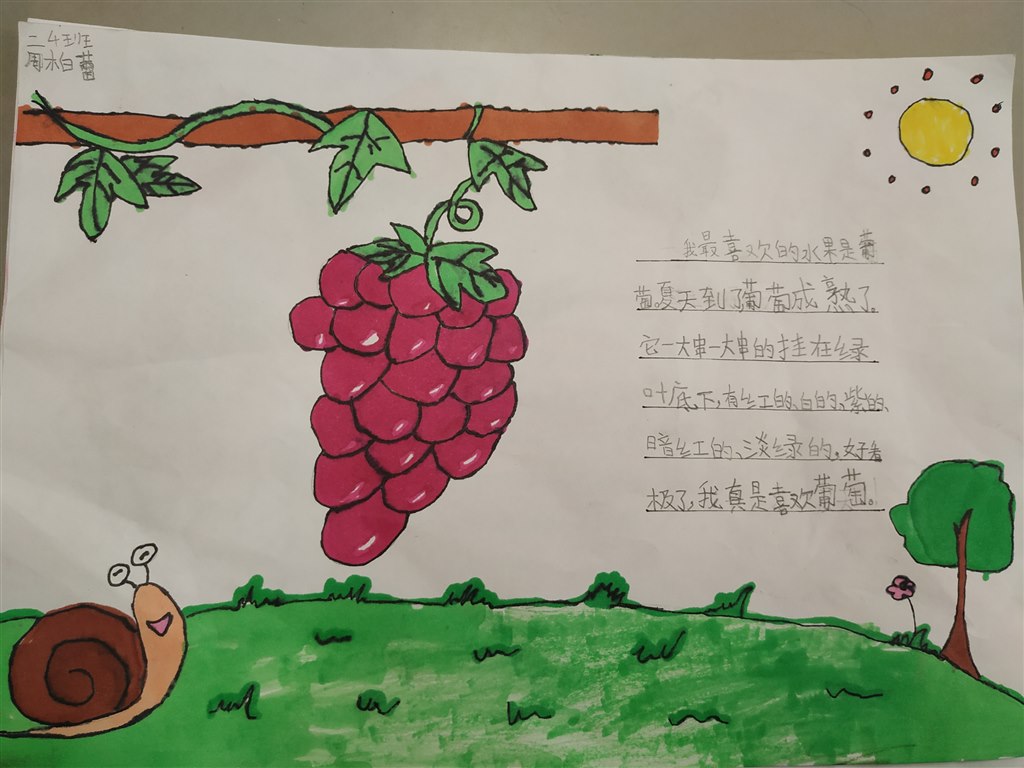 二4班
周冰白蕾
我最喜欢的水果是葡
萄。夏天到了葡萄成熟了。
它一大串一大串的挂在绿
叶底下,有红的、白的、紫的、
暗红的、淡绿的。好看
极了,我真是喜欢葡萄。